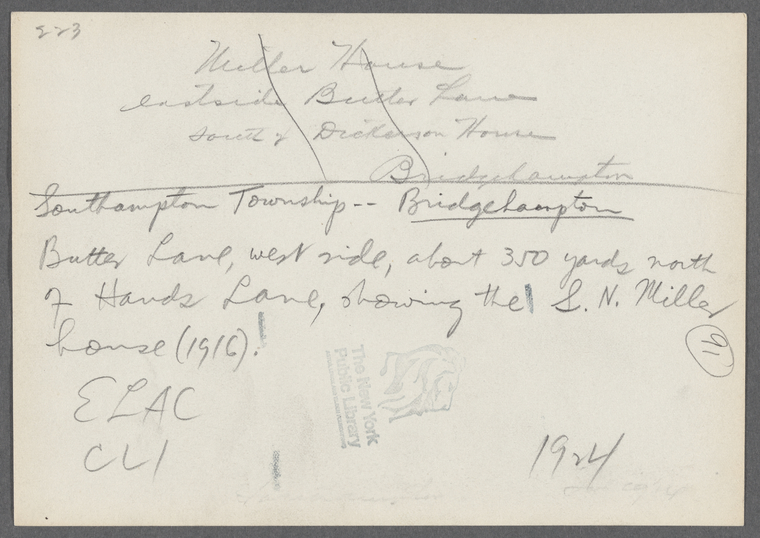 223
Miller House
eastside Butter Lane
south of Dickerson House
Bridgehampton
Southampton Township -- Bridgehampton
Butter Lane, west side, about 350 yards north
of Hands Lane, showing the S. N. Miller
house (1916).
91
ELAC
CLI
The New York
Public Library
1924